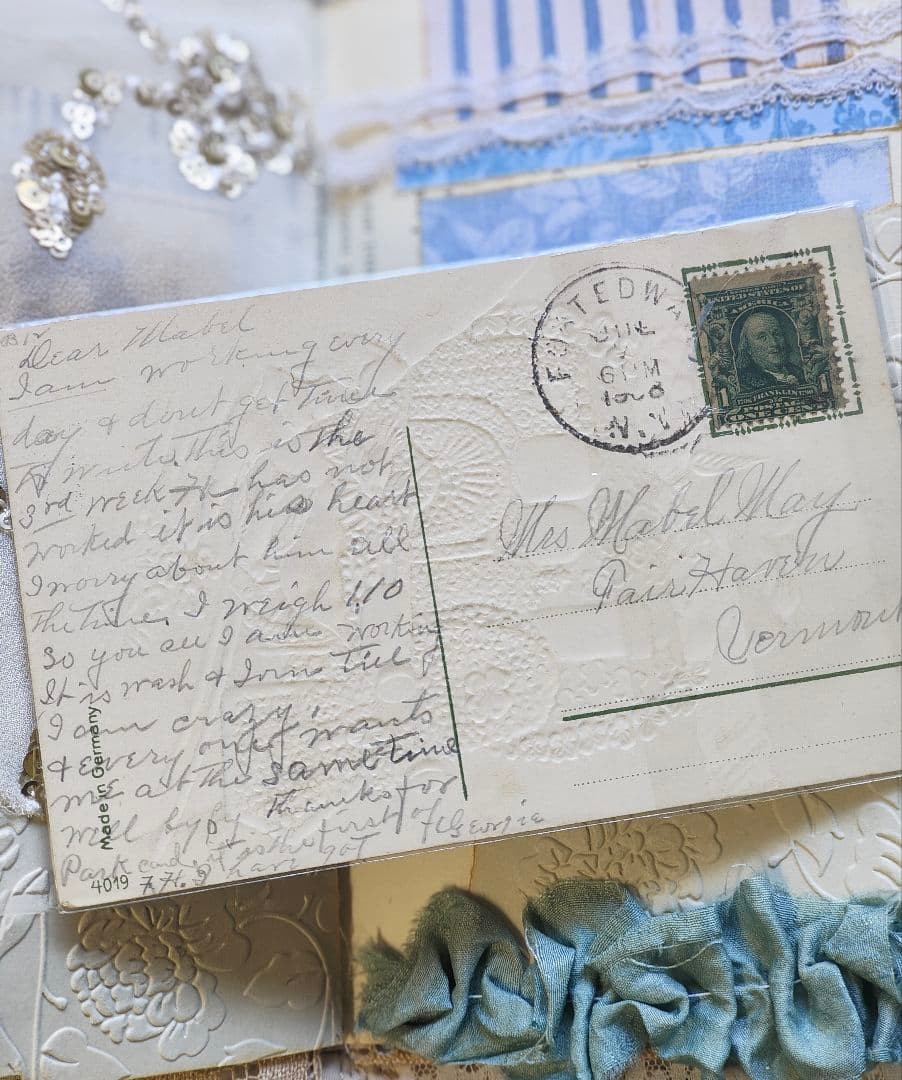 Dear Mabel
I am working every
day & dont get time
to write this is the
3rd week F.H. has not
worked it is his heart
I worry about him all
the time I weigh 110
so you see I am working
It is wash & Iron till
I am crazy,
& every one wants
me at the same time
well by by thanks for
Park card it is the first of
F.H. I have got Georgie
Made in Germany
4019
FORT EDWA
JUL
6 PM
N.Y.
UNITED STATES OF
AMERICA
1706 FRANKLIN 1790
1 POSTAGE 1
ONE CENT
Mrs Mabel May
Fair Haven
Vermont